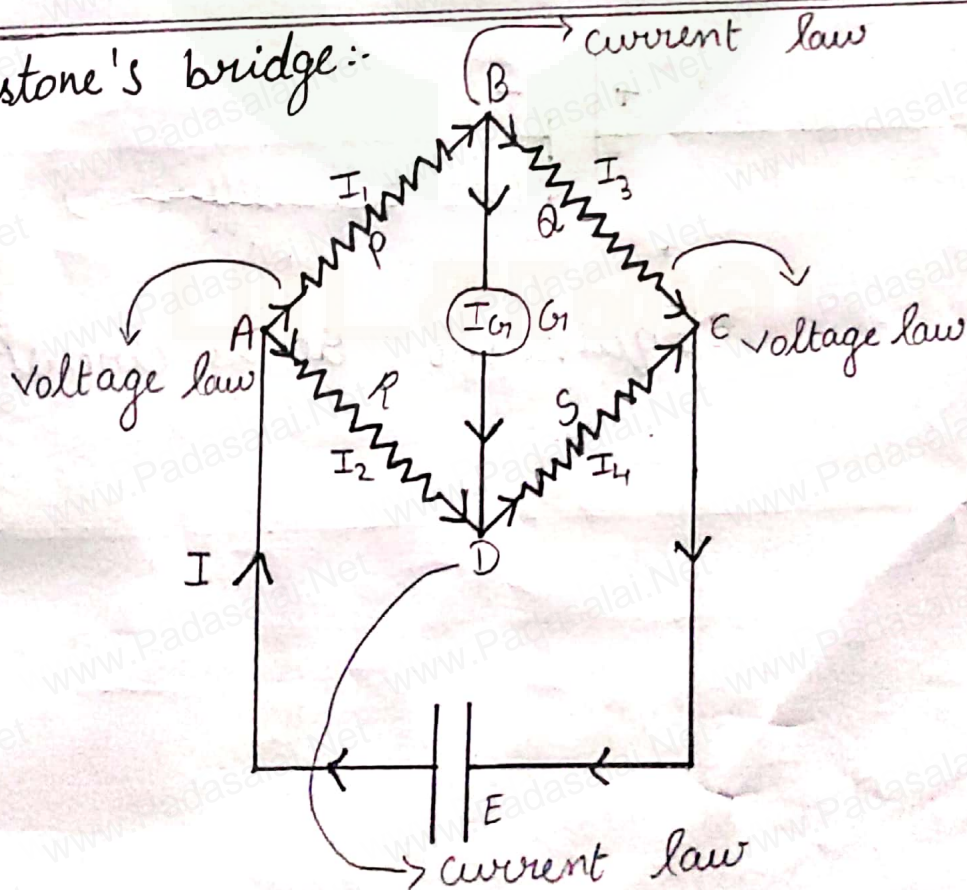 stone's bridge:-
current law
B
I₁
P
I₃
Q
A
I_G
G
C
voltage law
voltage law
R
I₂
S
I₄
D
I
E
current law
www.Padasalai.Net